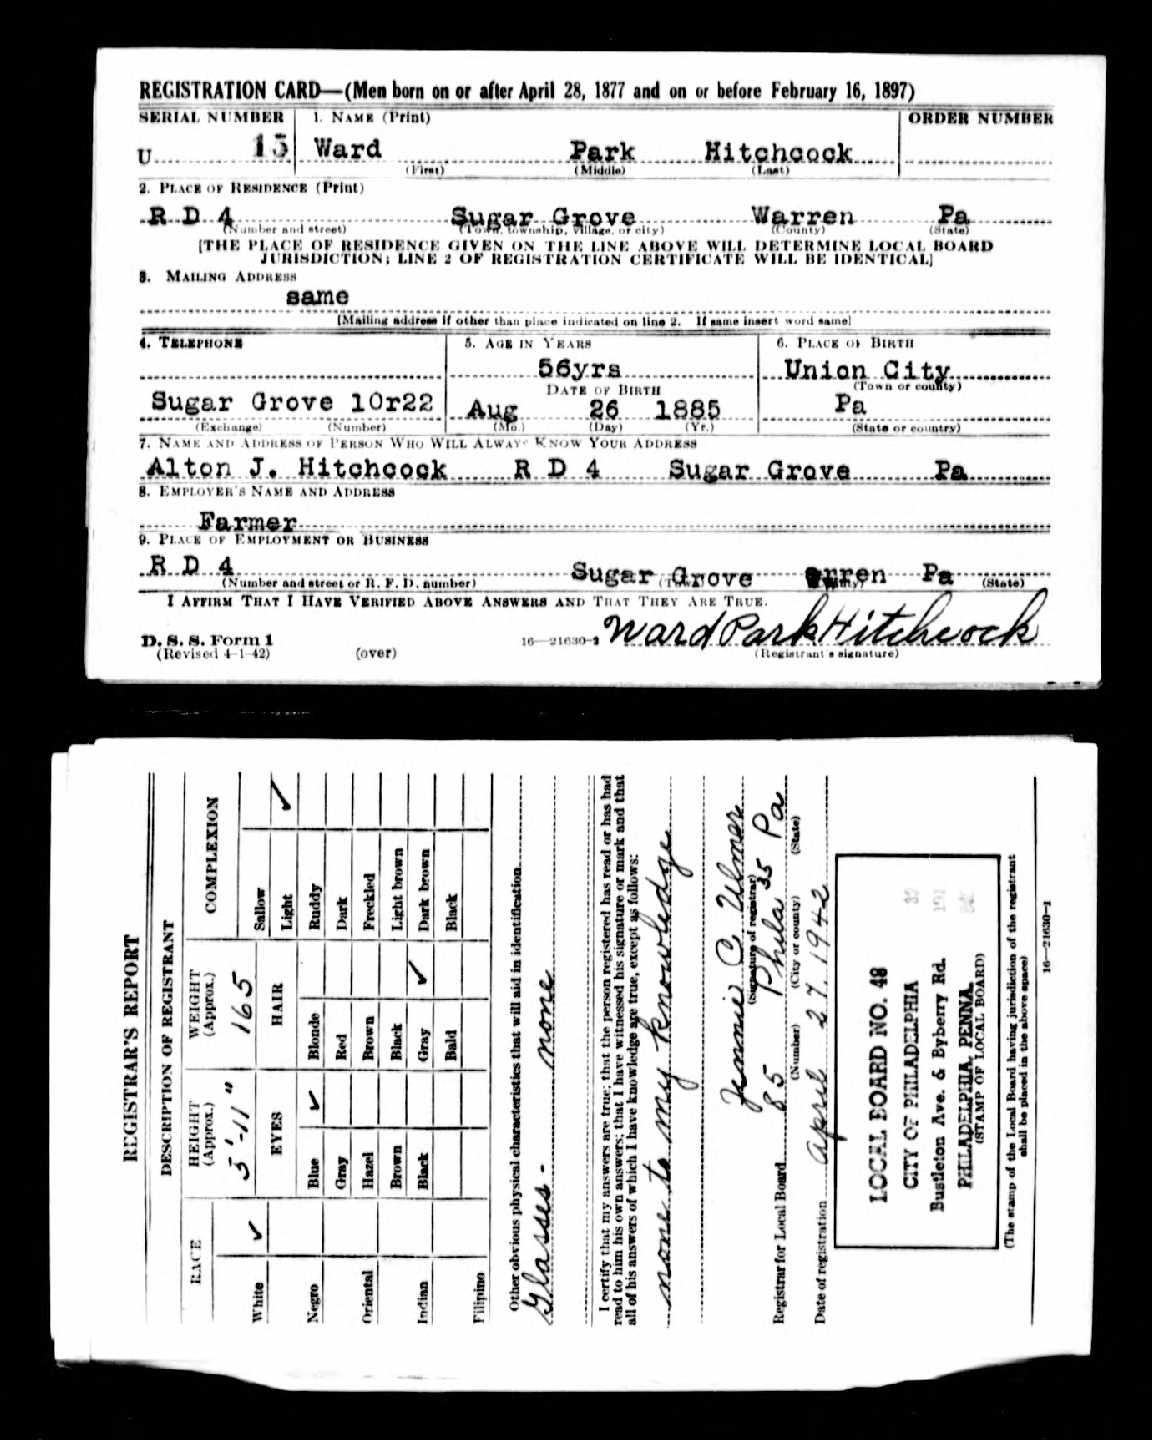 REGISTRATION CARD—(Men born on or after April 28, 1877 and on or before February 16, 1897)
SERIAL NUMBER 1. NAME (Print) ORDER NUMBER
U 13 Ward Park Hitchcock
(First) (Middle) (Last)
2. PLACE OF RESIDENCE (Print)
R D 4 Sugar Grove Warren Pa
(Number and street) (Town, township, village, or city) (County) (State)
[THE PLACE OF RESIDENCE GIVEN ON THE LINE ABOVE WILL DETERMINE LOCAL BOARD
JURISDICTION; LINE 2 OF REGISTRATION CERTIFICATE WILL BE IDENTICAL]
3. MAILING ADDRESS
same
[Mailing address if other than place indicated on line 2. If same insert word same]
4. TELEPHONE 5. AGE IN YEARS 6. PLACE OF BIRTH
56yrs Union City
DATE OF BIRTH (Town or county)
Sugar Grove 10r22 Aug 26 1885 Pa
(Exchange) (Number) (Mo.) (Day) (Yr.) (State or country)
7. NAME AND ADDRESS OF PERSON WHO WILL ALWAYS KNOW YOUR ADDRESS
Alton J. Hitchcock R D 4 Sugar Grove Pa
8. EMPLOYER'S NAME AND ADDRESS
Farmer
9. PLACE OF EMPLOYMENT OR BUSINESS
R D 4 Sugar Grove rren Pa
(Number and street or R. F. D. number) (State)
I AFFIRM THAT I HAVE VERIFIED ABOVE ANSWERS AND THAT THEY ARE TRUE.
D. S. S. Form 1 16—21630-2 Ward Park Hitchcock
(Revised 4-1-42) (over) (Registrant's signature)
REGISTRAR'S REPORT
DESCRIPTION OF REGISTRANT
RACE HEIGHT (Approx.) WEIGHT (Approx.) COMPLEXION
White ✓ 5'-11" 165 Sallow
EYES HAIR Light ✓
Negro Blue ✓ Blonde Ruddy
Gray Red Dark
Oriental Hazel Brown Freckled
Brown Black Light brown
Indian Black Gray ✓ Dark brown
Bald Black
Filipino
Other obvious physical characteristics that will aid in identification
Glasses - none
I certify that my answers are true; that the person registered has read or has had
read to him his own answers; that I have witnessed his signature or mark and that
all of his answers of which I have knowledge are true, except as follows:
none to my knowledge
Jennie C. Ulmer
(Signature of registrar)
Registrar for Local Board 85 Phila 35 Pa
(Number) (City or county) (State)
Date of registration April 27, 1942
LOCAL BOARD NO. 48
CITY OF PHILADELPHIA
Bustleton Ave. & Byberry Rd.
PHILADELPHIA, PENNA.
(STAMP OF LOCAL BOARD)
(The stamp of the Local Board having jurisdiction of the registrant
shall be placed in the above space)
16—21630-1